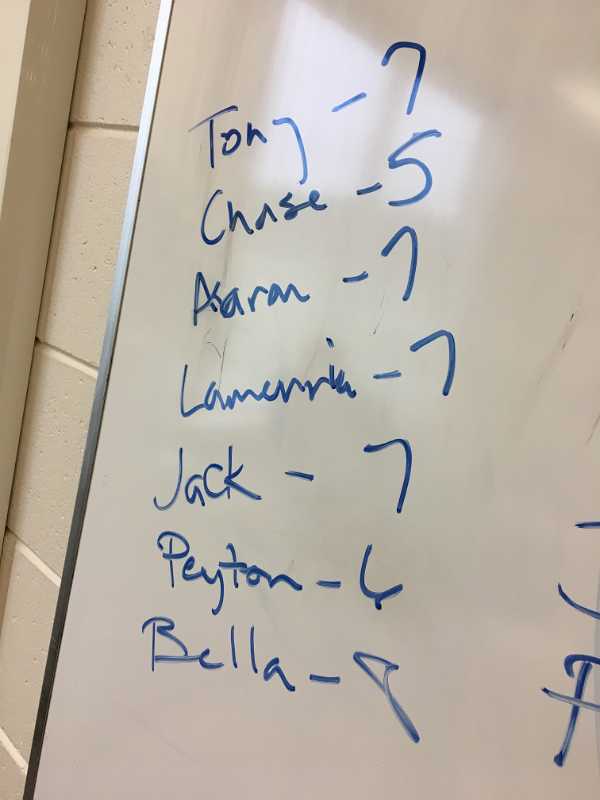 Tony - 7
Chase - 5
Aaron - 7
- 7
Jack - 7
Peyton - 6
Bella - 8